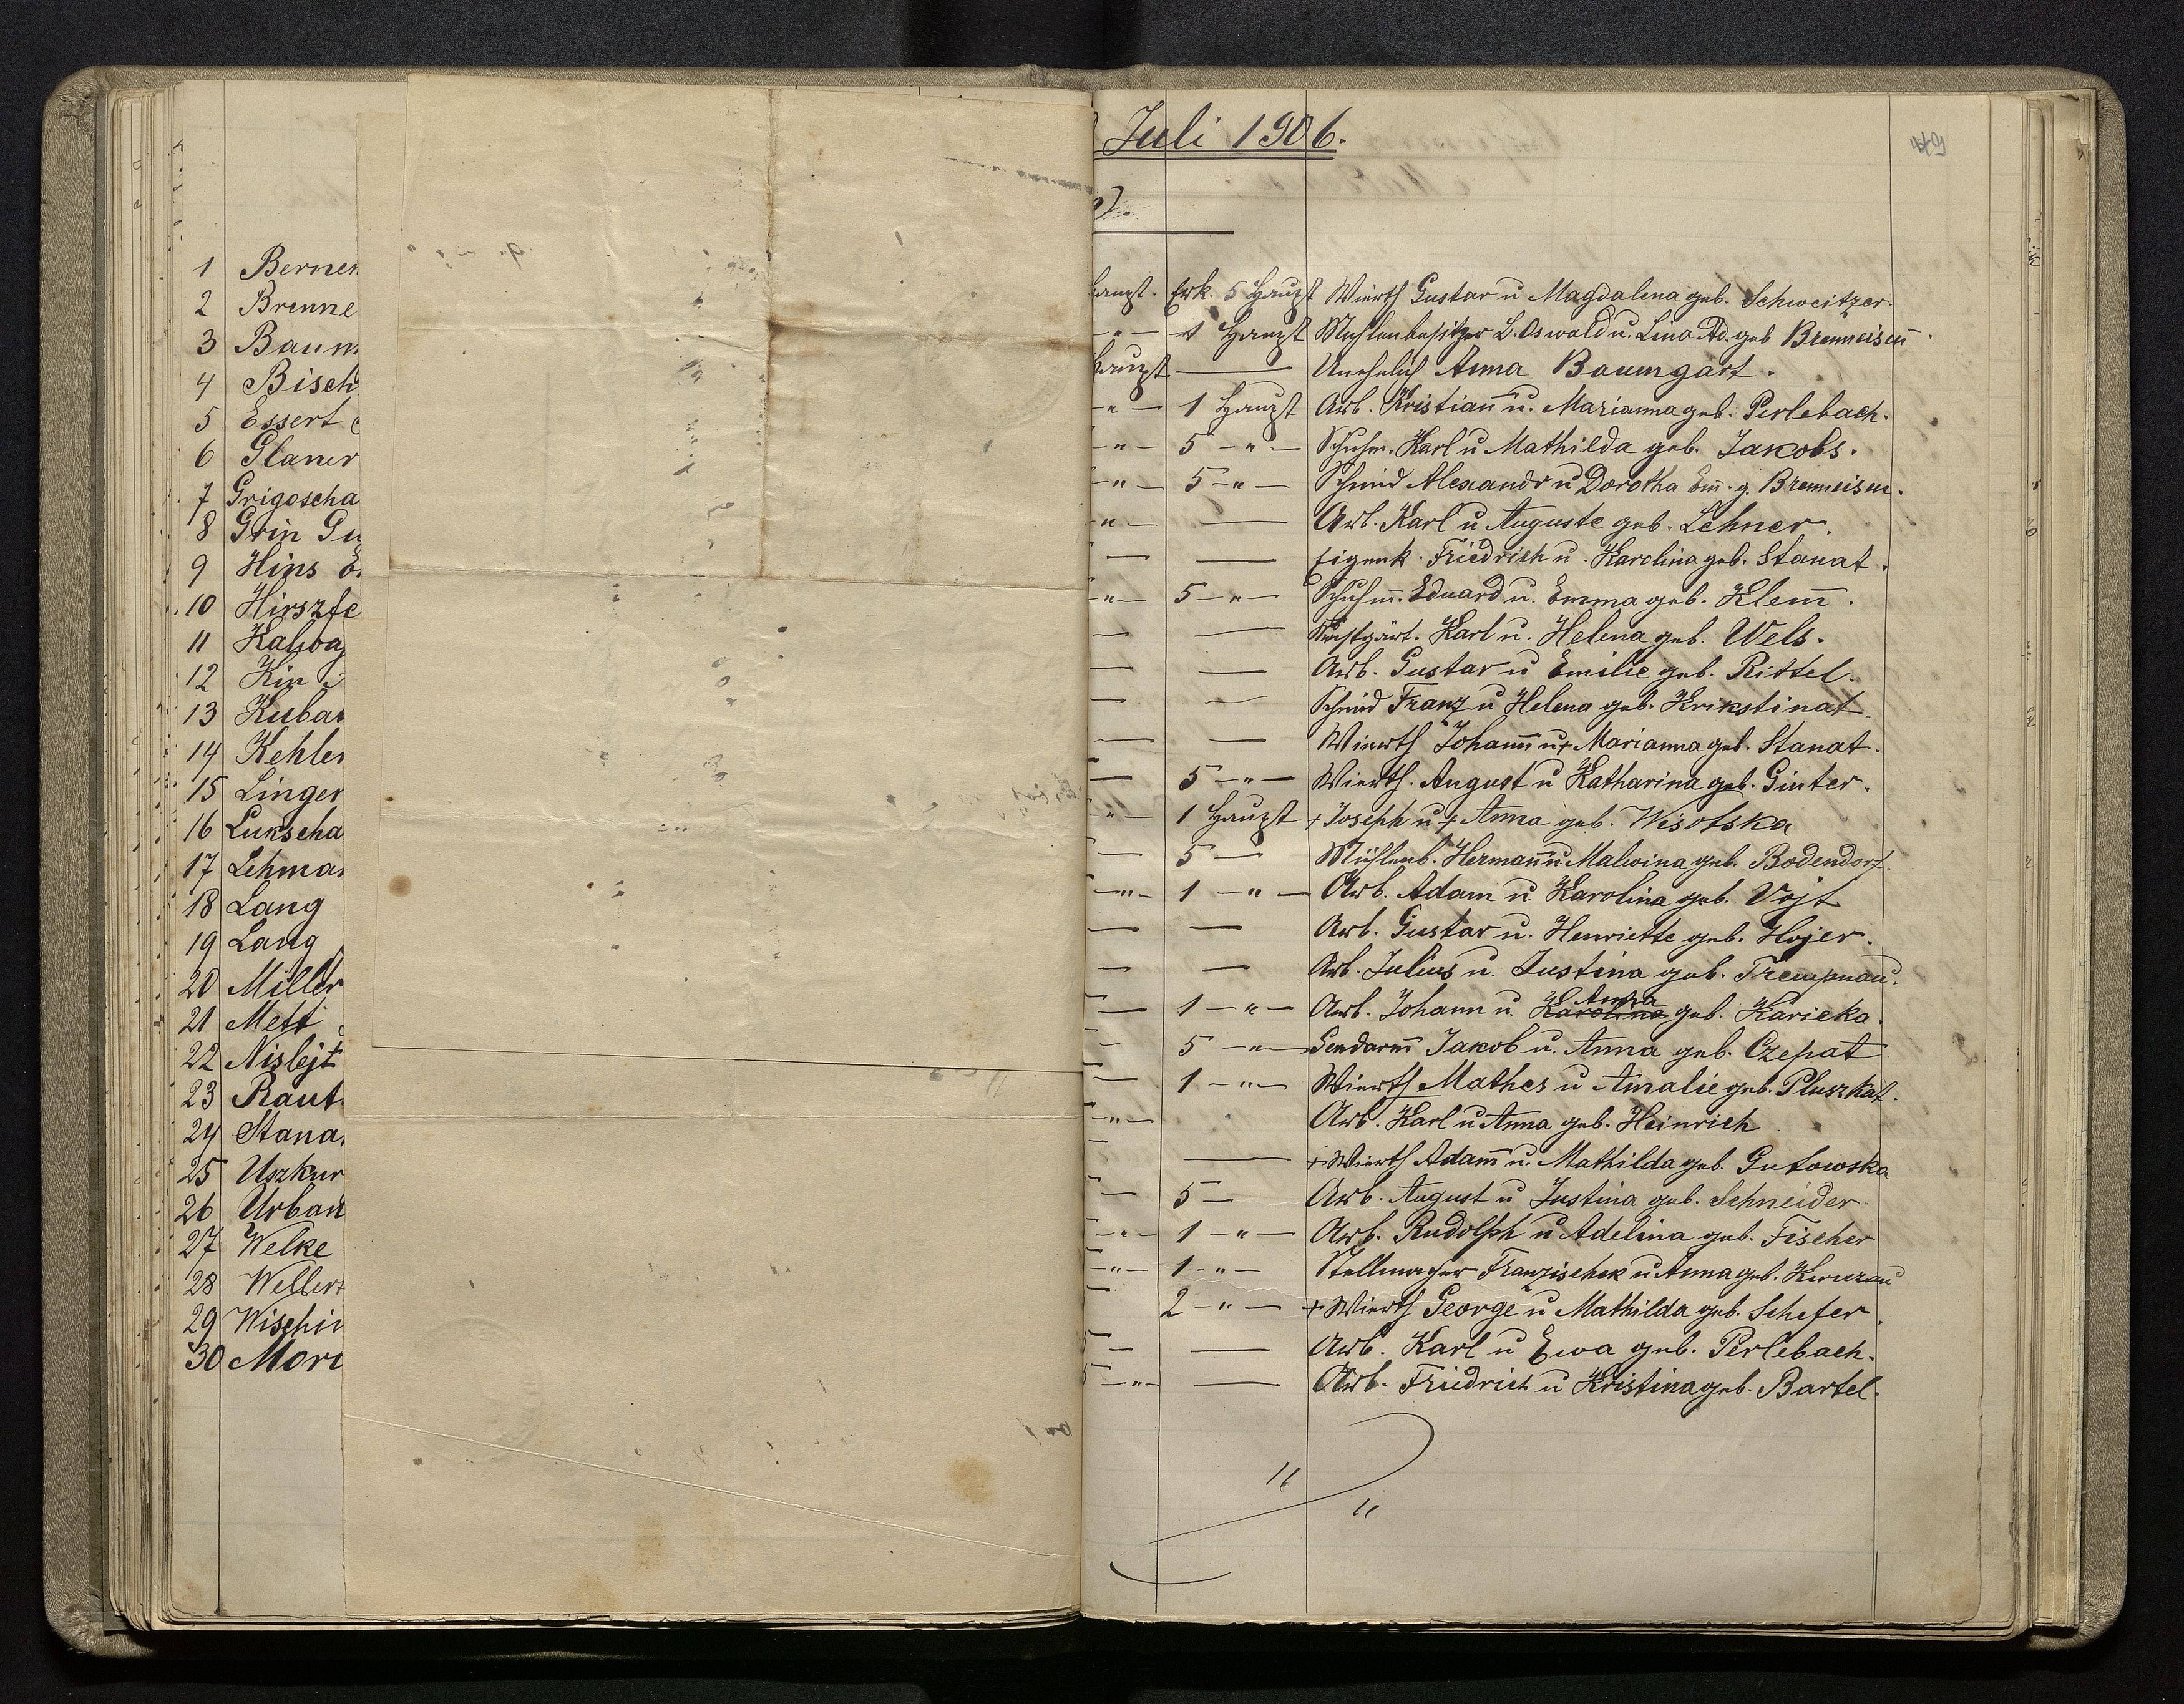 Juli 1906.
1 Berner
2 Brenne
3 Baum
4 Bisch
5 Essert
6 Glaner
7 Grigoscha
8 Grin Gu
9 Hins E
10 Hirszfe
11 Kalwa
12 Kin
13 Kuba
14 Kehler
15 Linger
16 Lukscha
17 Lehma
18 Lang
19 Lang
20 Miller
21 Mett
22 Nislejt
23 Raut
24 Stana
25 Uszkur
26 Urban
27 Welke
28 Weller
29 Wischi
30 Mori
Haupt. Erk. 5 Haupt Wierth Gustav u Magdalena geb. Schweitzer.
-"- 1 Haupt Mühlenbesitzer L. Oswald u. Lina Ad. geb Brenneisen.
Haupt — Unehelich Anna Baumgart.
-"- 1 Haupt Arb. Kristian u. Marianna geb. Perlebach.
-"- 5 -"- Schuhm. Karl u Mathilda geb. Jakobs.
-"- 5 -"- Schmid Alexandr u Dorothea Em. g. Brenneisen.
-"- — Arb. Karl u Auguste geb. Lehner.
— — Eigenk. Friedrich u. Karolina geb. Stanat.
-"- 5 -"- Schuhm. Eduard u. Emma geb. Klem̄.
— — Karl u. Helena geb. Wels.
— — Arb. Gustav u Emilie geb. Rittel.
— — Schmid Franz u Helena geb. Krikstinat.
— — Wierth Johann u + Marianna geb. Stanat.
— 5 -"- Wierth. August u Katharina geb. Ginter.
-"- 1 Haupt + Joseph u + Anna geb. Wisotska
— 5 — Mühlenb. Hermann u Malwina geb. Bodendorf.
-"- 1 -"- Arb. Adam u Karolina geb. Vojt
— — Arb. Gustav u. Henriette geb. Hojer.
— — Arb. Julius u. Justina geb. Trempnau.
— 1 -"- Arb. Johann u. Karolina Anna geb. Karicka.
— 5 -"- Gendarm Jakob u. Anna geb. Czepat
— 1 -"- Wierth Mathes u Amalie geb. Pluszkat.
-"- Arb. Karl u Anna geb. Heinrich
— + Wierth Adam u. Mathilda geb. Gutowska
— 5 — Arb. August u Justina geb. Schneider
-"- 1 -"- Arb. Rudolph u Adelina geb. Fischer
-"- 1 -"- Stellmacher Franzischek u Anna geb.
— 2 -"- + Wierth George u Mathilda geb. Schefer.
— — Arb. Karl u Ewa geb. Perlebach.
-"- — Arb. Friedrich u Kristina geb. Bartel.